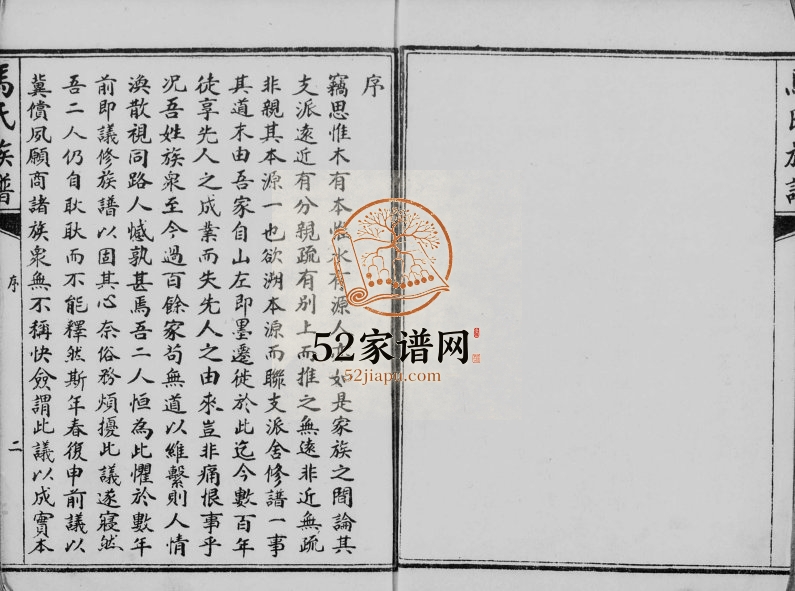 馬氏族譜
序
竊思惟木有本水有源人如是家族之間論其
支派遠近有分親疏有別上而推之無遠非近無疏
非親其本源一也欲溯本源而聯支派舍修譜一事
其道末由吾家自山左即墨遷徙於此迄今數百年
徒享先人之成業而失先人之由來豈非痛恨事乎
况吾姓族衆至今過百餘家苟無道以維繫則人情
渙散視同路人憾孰甚焉吾二人恒為此懼於數年
前即議修族譜以固其心奈俗務煩擾此議遂寢然
吾二人仍自耿耿而不能釋然斯年春復申前議以
冀償夙願商諸族衆無不稱快僉謂此議以成實本
馬氏族譜
序
二
52家谱网
52jiapu.com